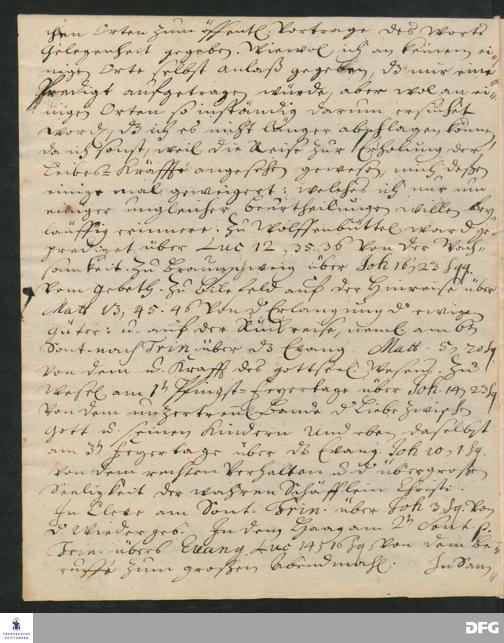 chen Orten zum öffentl. Vortrage des Worts
Gelegenheit gegeben. Wiewol ich an keinem ei-
nigen Orte selbst Anlaß gegeben, dß mir eine
Predigt aufgetragen würde, aber wol an ei-
nigen Orten so inständig darum ersuchet
word, dß ich es nicht länger abschlagen könne,
da ich sonst, weil die Reise zur Erholung der
Leibes-Kräffte angesehen gewesen, mich deßen
einige mal geweigert: welches ich nur um
einiger ungleicher Beurtheilungen willen bey-
läuffig erinnere. Zu Wolffenbüttel ward ge-
prediget über Luc 12, 35.36 von der Wach-
samkeit. Zu Braunschweig über Joh 16, 23 sqq.
vom Gebeth. Zu Bilefeld auf der Hinreise über
Matt 13, 45.46 von d Erlangung d ewigen
Güter: u. auf der Rückreise, neml. am 6t
Sont. nach Trin. über dß Evang. Matt. 5, 20 sq
von dem u. Krafft des gottseel. Wesens. Zu
Wesel am 1t Pfingst-Feyertage über Joh. 14, 23 sq
von dem unzertrenl. Bande d Liebe zwischen
Gott u. seinen Kindern und eben daselbst
am 3t Feyertage über dß Evang. Joh 10, 1 sq.
von dem rechten Verhalten u. d übergroßen
Seeligkeit der wahren Schäfflein Christi.
In Cleve am Sont. Trin. über Joh 3 sq. von
d Wiederges. In dem Haag am 2t Sont. p.
Trin. übers Evang. Luc 14, 16 sq. von dem Be-
ruffe zum großen Abendmahl. In Am-
FRANCKESCHE
STIFTUNGEN
DFG